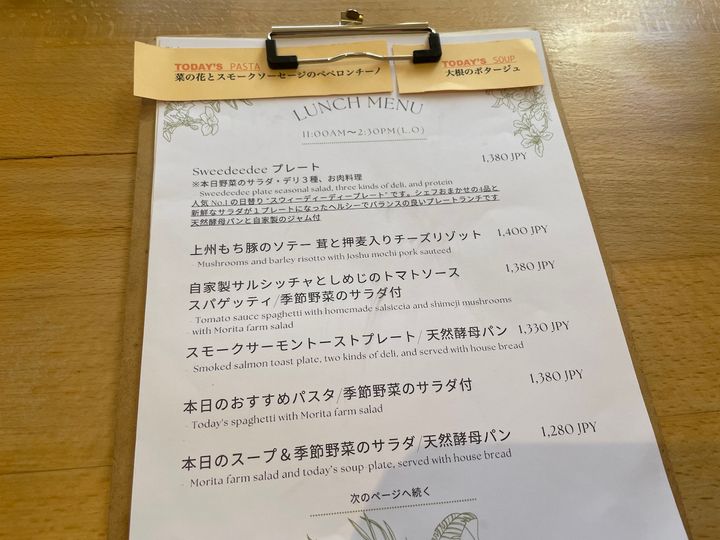 TODAY'S PASTA
菜の花とスモークソーセージのペペロンチーノ
TODAY'S SOUP
大根のポタージュ
LUNCH MENU
11:00AM〜2:30PM(L.O)
Sweedeedee プレート 1,380 JPY
※本日野菜のサラダ・デリ３種、お肉料理
Sweedeedee plate seasonal salad, three kinds of deli, and protein
人気 No.1 の日替り "スウィーディーディープレート" です。シェフおまかせの4品と
新鮮なサラダが１プレートになったヘルシーでバランスの良いプレートランチです
天然酵母パンと自家製のジャム付
上州もち豚のソテー 茸と押麦入りチーズリゾット 1,400 JPY
- Mushrooms and barley risotto with Joshu mochi pork sauteed
自家製サルシッチャとしめじのトマトソース 1,380 JPY
スパゲッティ/季節野菜のサラダ付
- Tomato sauce spaghetti with homemade salsiccia and shimeji mushrooms
- with Morita farm salad
スモークサーモントーストプレート/ 天然酵母パン 1,330 JPY
- Smoked salmon toast plate, two kinds of deli, and served with house bread
本日のおすすめパスタ/季節野菜のサラダ付 1,380 JPY
- Today's spaghetti with Morita farm salad
本日のスープ＆季節野菜のサラダ/天然酵母パン 1,280 JPY
- Morita farm salad and today's soup plate, served with house bread
次のページへ続く